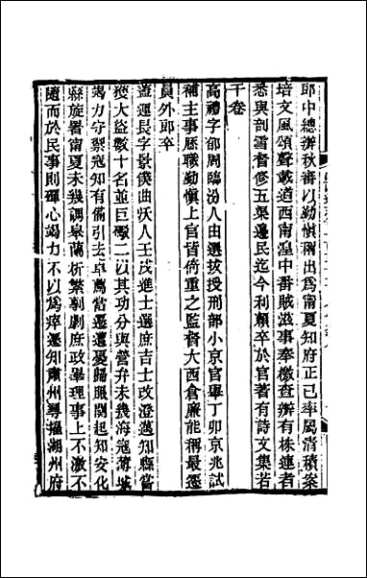 郎中總辦秋審以勤慎稱出爲甯夏知府正己率屬清積案
培文風頌聲載道西南湟中番賊滋事奉檄查辦有株連者
悉與剖雪督修五渠邊民迄今利賴卒於官著有詩文集若
干卷
高禮字部周臨汾人由選拔授刑部小京官舉丁卯京兆試
補主事歷職勤愼上官皆倚重之監督大西倉廉能稱最遷
員外郎卒
運長字景僕曲沃人壬戌進士選庶吉士改澄邁知縣嘗
獲大盜數十名並巨礮二以其功分與營弁未幾海冠薄城
竭力守禦冠知有備引去卓薦當遷遭憂歸服闋起知安化
縣旋署甯夏未幾調皋蘭析繁剸劇庶政畢理事上不激不
隨而於民事則殫心竭力不以爲瘁遷知肅州尋擢湖州府